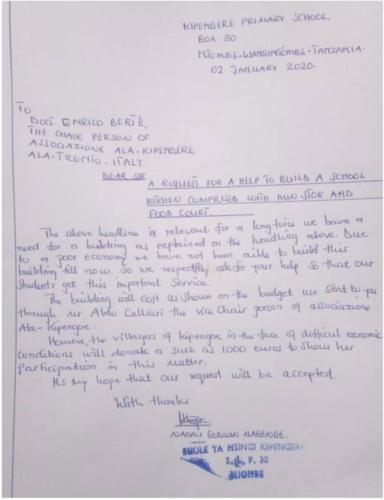 KIPENGERE PRIMARY SCHOOL,
BOX 30
NJOMBE-WANGING'OMBE-TANZANIA.
02 JANUARY 2020.
TO
DOCT. ENRICO BERTÈ,
THE CHAIR PERSON OF
ASSOCIAZIONE ALA-KIPENGERE,
ALA-TRENTO-ITALY
DEAR SIR
A RIQUEST FOR A HELP TO BUILD A SCHOOL
KITCHEN COMPRISED WITH MINI STOR AND
FOOD COURT.
The above headline is relevant for a long time we have a
need for a building as explained on the headling above. Due
to a poor economy we have not been able to build this
building till now. So we respectfully ask for your help so that our
students get this important service.
The building will cost as shown on the budget we sent to you
through mr Aldo Calliari the vice chair person of associazione
Ala-Kipengere.
However, the villagers of kipengere in the face of difficult economic
conditions will donate a such as 1000 euros to show her
participation in this matter.
It's my hope that our request will be accepted.
With thanks
SHULE YA MSINGI KIPENGERE
S.L.P. 30
NJOMBE